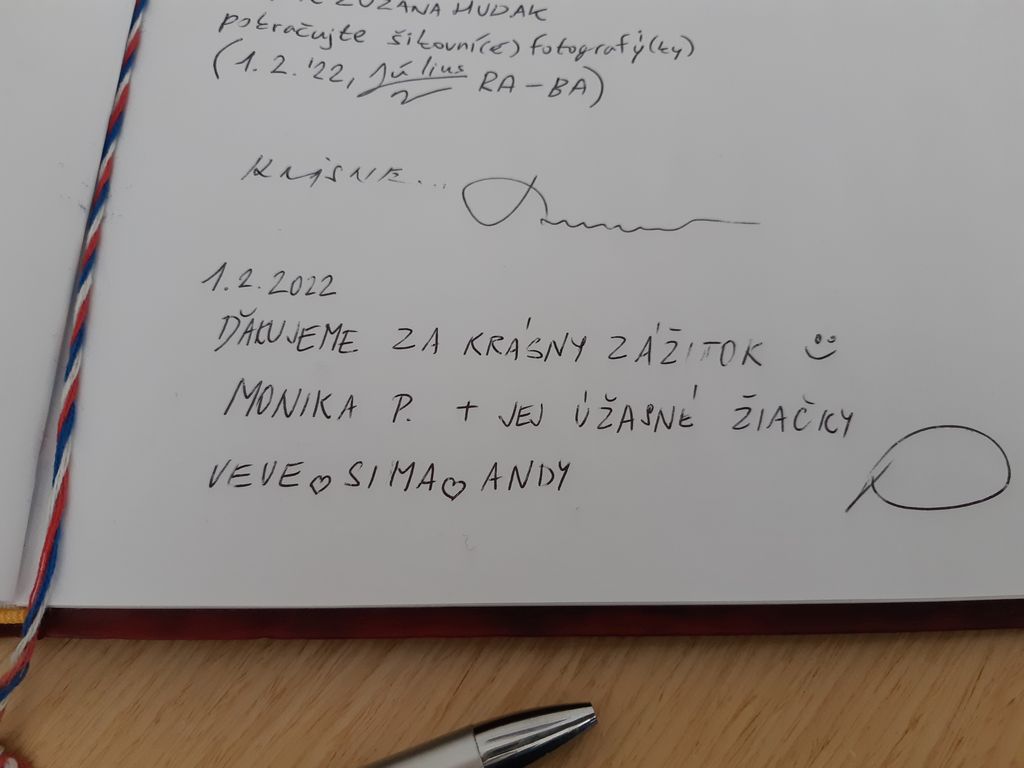 ZUZANA HUDAK
pokračujte šikovní(é) fotografi/ý(ky)
(1.2.'22, Július RA-BA)
KRÁSNE...
1.2.2022
ĎAKUJEME ZA KRÁSNY ZÁŽITOK
MONIKA P. + JEJ ÚŽASNÉ ŽIAČKY
VEVE ♡ SIMA ♡ ANDY